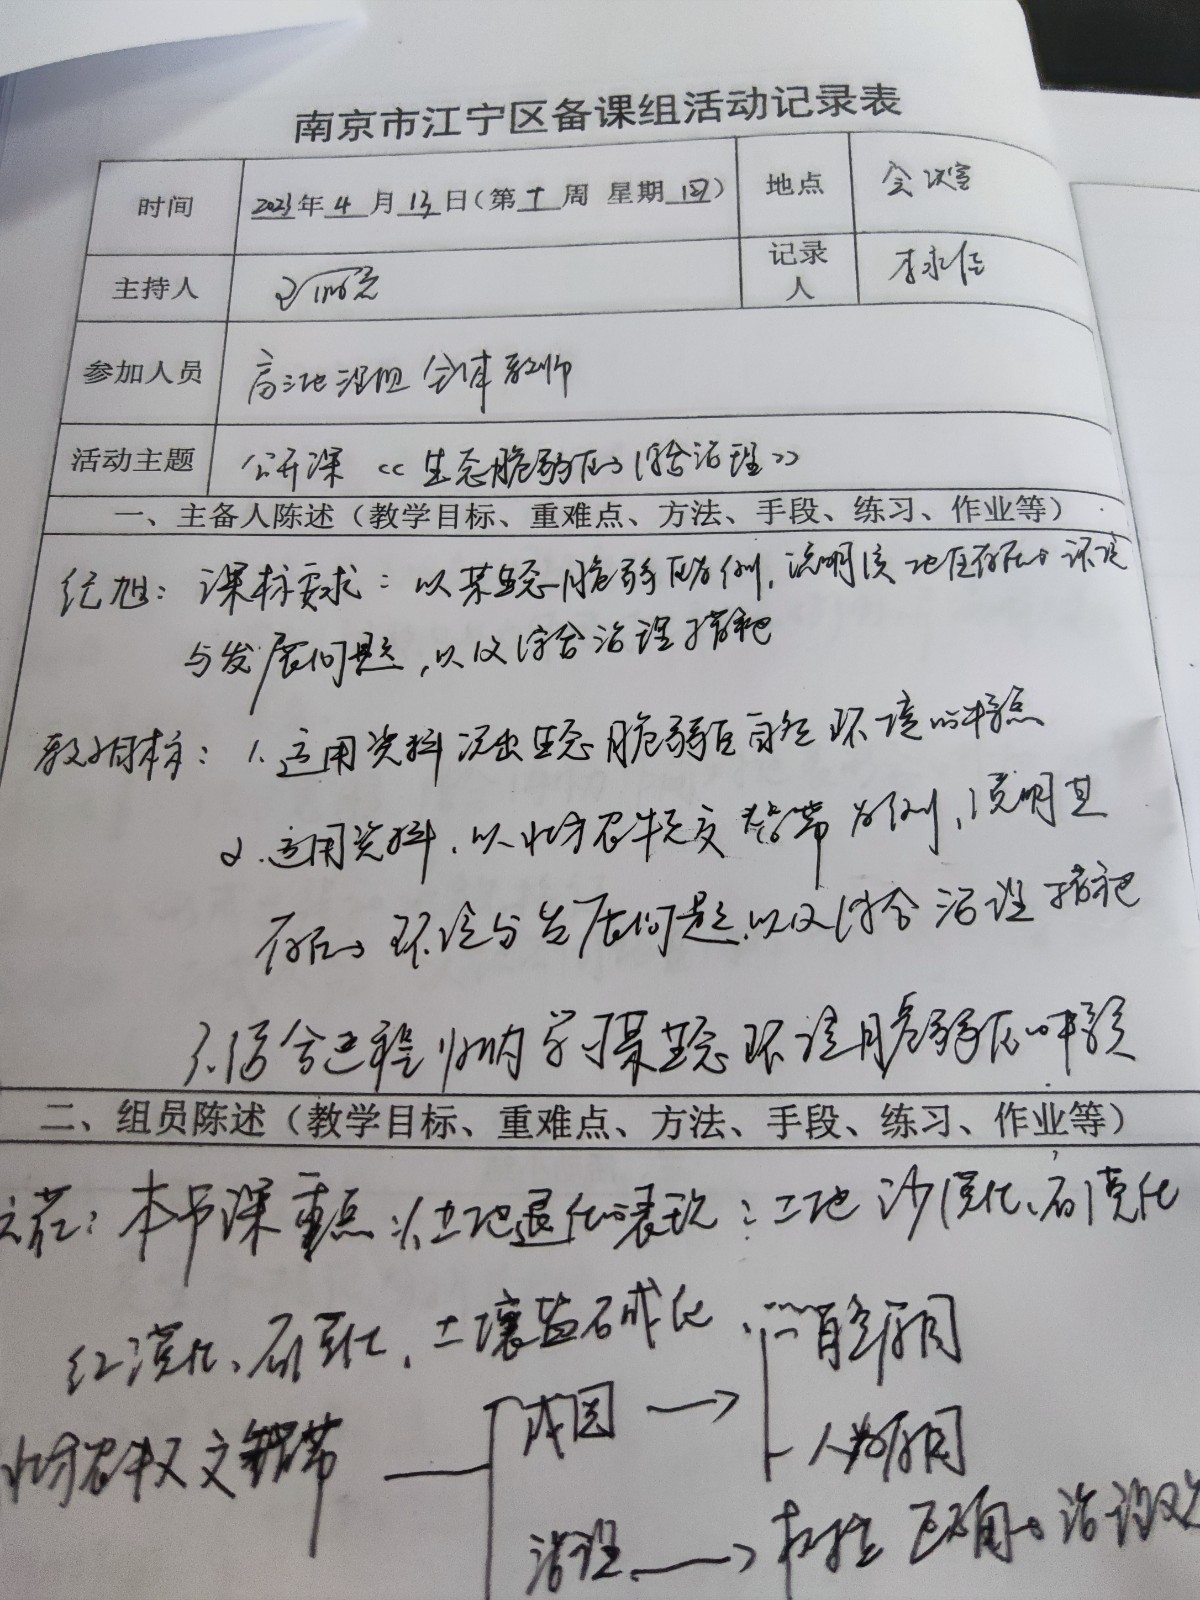 南京市江宁区备课组活动记录表
时间 2023年4月13日(第十周 星期四) 地点 会议室
主持人 记录人 李永信
参加人员 高二地理组全体教师
活动主题 公开课《生态脆弱区的综合治理》
一、主备人陈述（教学目标、重难点、方法、手段、练习、作业等）
旭：课标要求：以某生态脆弱区为例，说明该地区存在的环境
与发展问题，以及综合治理措施
教学目标：1.运用资料说出生态脆弱区自然环境的特点
2.运用资料，以北方农牧交错带为例，说明其
存在的环境与发展问题，以及综合治理措施
3.归纳学习某生态环境脆弱区的
二、组员陈述（教学目标、重难点、方法、手段、练习、作业等）
本节课重点：1.土地退化的表现：土地沙漠化、石漠化
红漠化、土壤盐碱化
北方农牧交错带
成因 → 自然原因
人为原因
治理 →